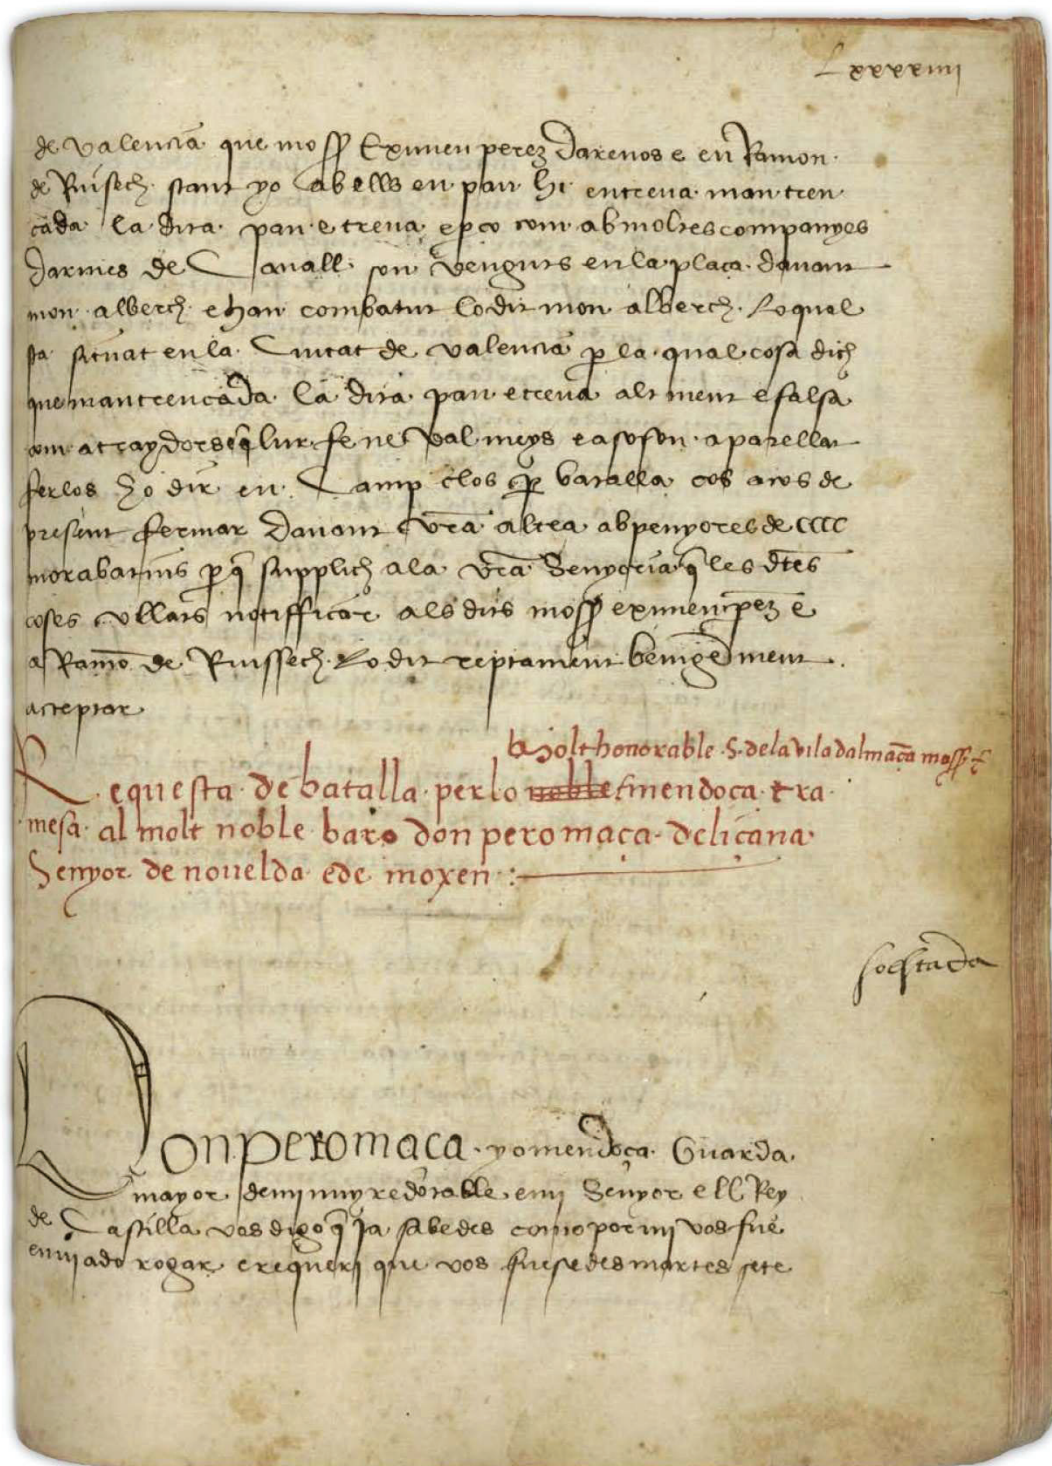 Lxxxxiiii
de valencia que moss Eximen perez darenos e en Ramon
de Ruisech stant yo ab ells en pau hi en treua man tren
cada la dita pau e treua e ço com ab moltes companyes
darmes de Cauall son venguts en la plaça dauant
mon alberch e han combatut lo dit mon alberch. Lo qual
sta situat en la Ciutat de valencia p la qual cosa dich
que man trencada la dita pau e treua alt ment e falsa
com a traydors e q lur fe ne val meys e a so son aparellat
fer los ho dir en Camp clos p batalla cos a cos de
present fermar dauant vra altea ab penyores de cccc
morabatins p q supplich a la vra Senyoria q les dtes
coses vullats notifficar als dits moss eximen pez e
a Ramo de Ruissech. Lo dit reptament benigament
acceptar
molt honorable .S. de la vila dalmaça moss
Requesta de batalla per lo noble mendoça tra
mesa al molt noble baro don pero maça de liçana
Senyor de nouelda e de moxen :
soestada
Don pero maca. yo mendoça Guarda
mayor de mi muy redorable e mi Senyor ell Rey
de Castilla vos digo q ja sabedes como por mi vos fue
enuiado rogar e requeri que vos fuesedes martes sete